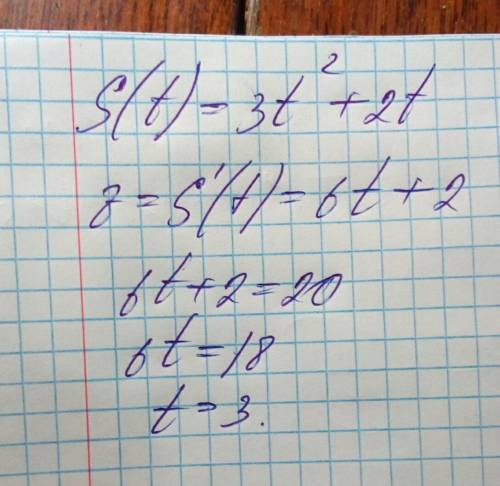 S(t) = 3t² + 2t
v = S'(t) = 6t + 2
6t + 2 = 20
6t = 18
t = 3.